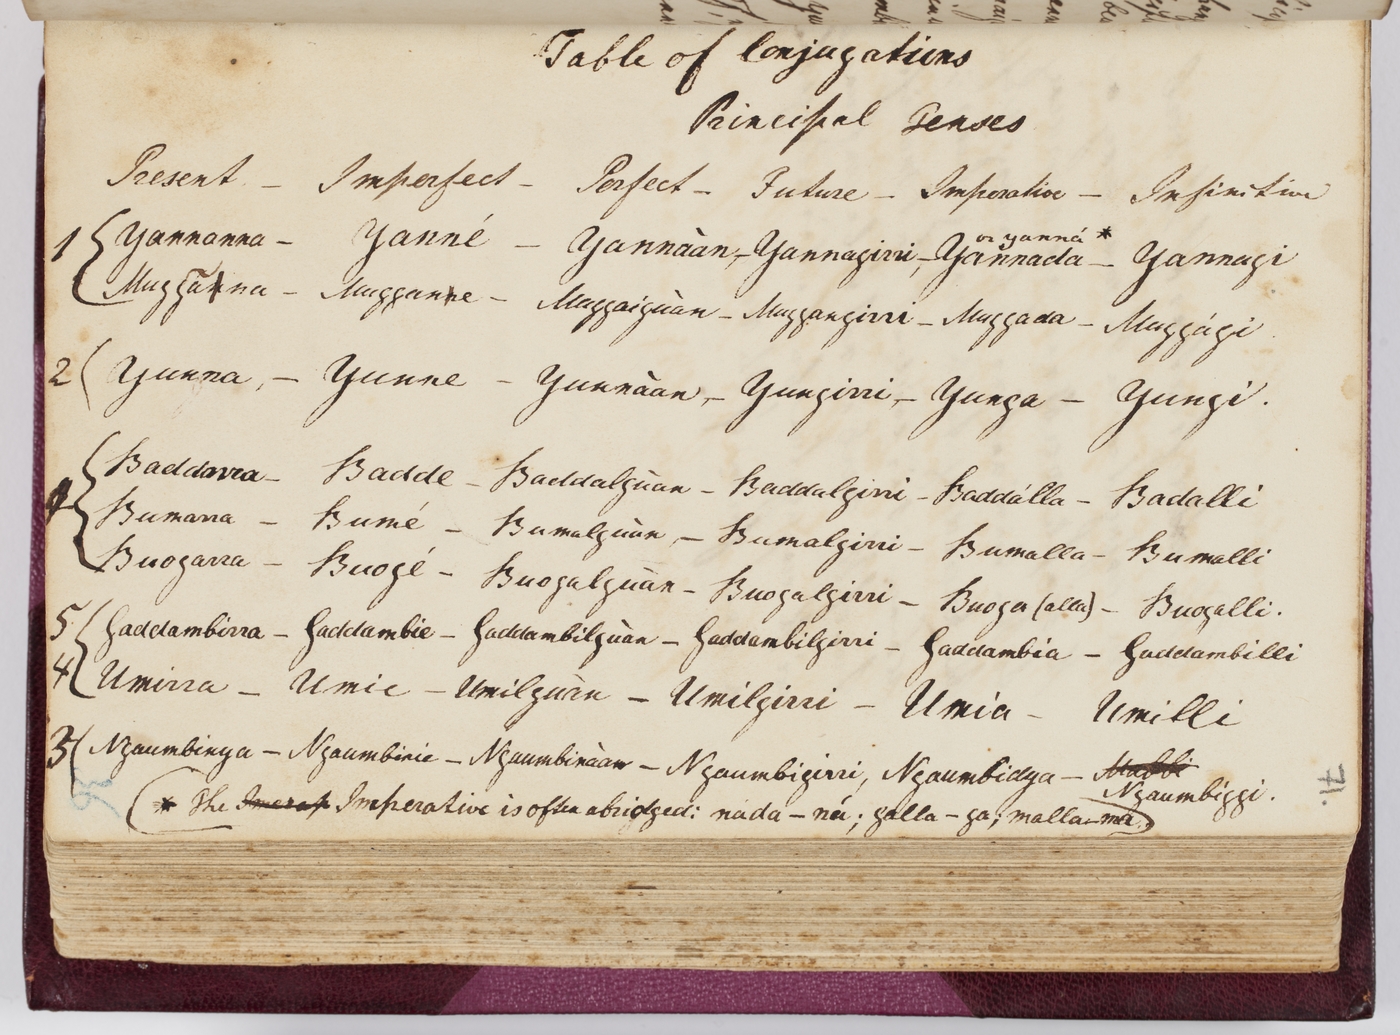 Table of Conjugations
Principal Tenses
Present - Imperfect - Perfect - Future - Imperative - Infinitive
or yanná *
1 Yannanna - Yanné - Yannàan - Yannagirri - Yannada - Yannagi
Muggaanna - Mugganne - Muggaiguàn - Muggangirri - Muggada - Muggági
2 Yunna, - Yunne - Yunnàan, - Yungirri, - Yunga - Yungi.
Baddarra - Badde - Baddalguàn - Baddalgirri - Baddálla - Badalli
Bumarra - Bumé - Bumalguàn, - Bumalgirri - Bumalla - Bumalli
Buogarra - Buogé - Buogalguàn - Buogalgirri - Buoga (alla) - Buogalli.
5 Gaddambirra - Gaddambie - Gaddambilguàn - Gaddambilgirri - Gaddambia - Gaddambilli
4 Umirra - Umie - Umilguàn - Umilgirri - Umia - Umilli
3 Ngaumbinya - Ngaumbinie - Ngaumbinàan - Ngaumbigirri, Ngaumbidya -
Ngaumbiggi.
* The Imperative is often abridged: nada - ná; galla - ga; malla - ma.)
71.